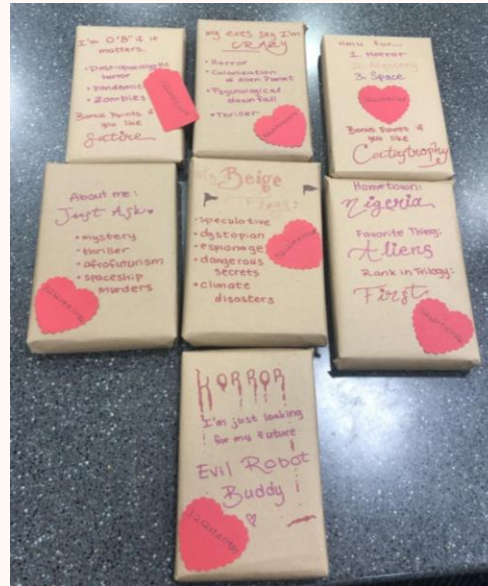 I'm 0'8" if it
matters.
• Post-apocalyptic
horror
• Pandemic
• Zombies
Bonus Points if
you like
Satire
my exes say I'm
CRAZY
• Horror
• Colonization
of Alien Planet
• Psychological
downfall
• Thriller
1. Horror
2. Mystery
3. Space
Bonus Points if
you like
Catastrophy
About me:
Just Ask
• mystery
• thriller
• afrofuturism
• spaceship
murders
My Beige
Flags:
• speculative
• dystopian
• espionage
• dangerous
secrets
• climate
disasters
Hometown:
Nigeria
Favorite Thing:
Aliens
Rank in Trilogy:
First
HORROR
I'm just looking
for my future
Evil Robot
Buddy